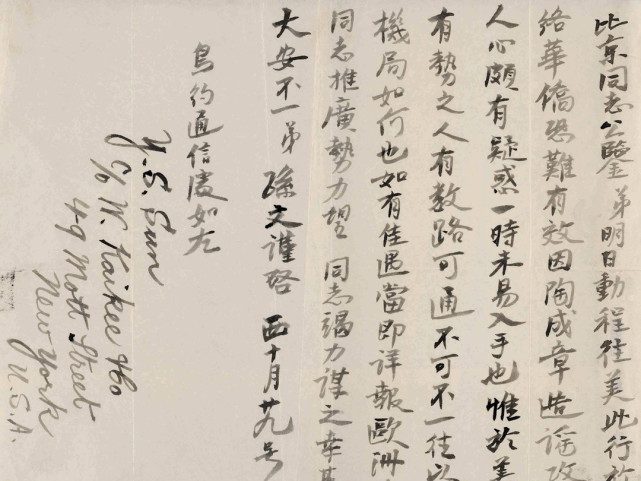 比京同志公鑒 弟明日動程往美此行於
絡華僑恐難有效因陶成章造謠攻
人心頗有疑惑一時未易入手也惟於美
有勢之人有數路可通不可不一往以
機局如何也如有佳遇當即詳報歐洲
同志推廣勢力望 同志竭力謀之幸甚
大安不一弟 孫文謹啓 西十月廿九号
鳥約通信處如左
Y. S. Sun
c/o W. Kaikee & Co
49 Mott Street
New York
U.S.A.